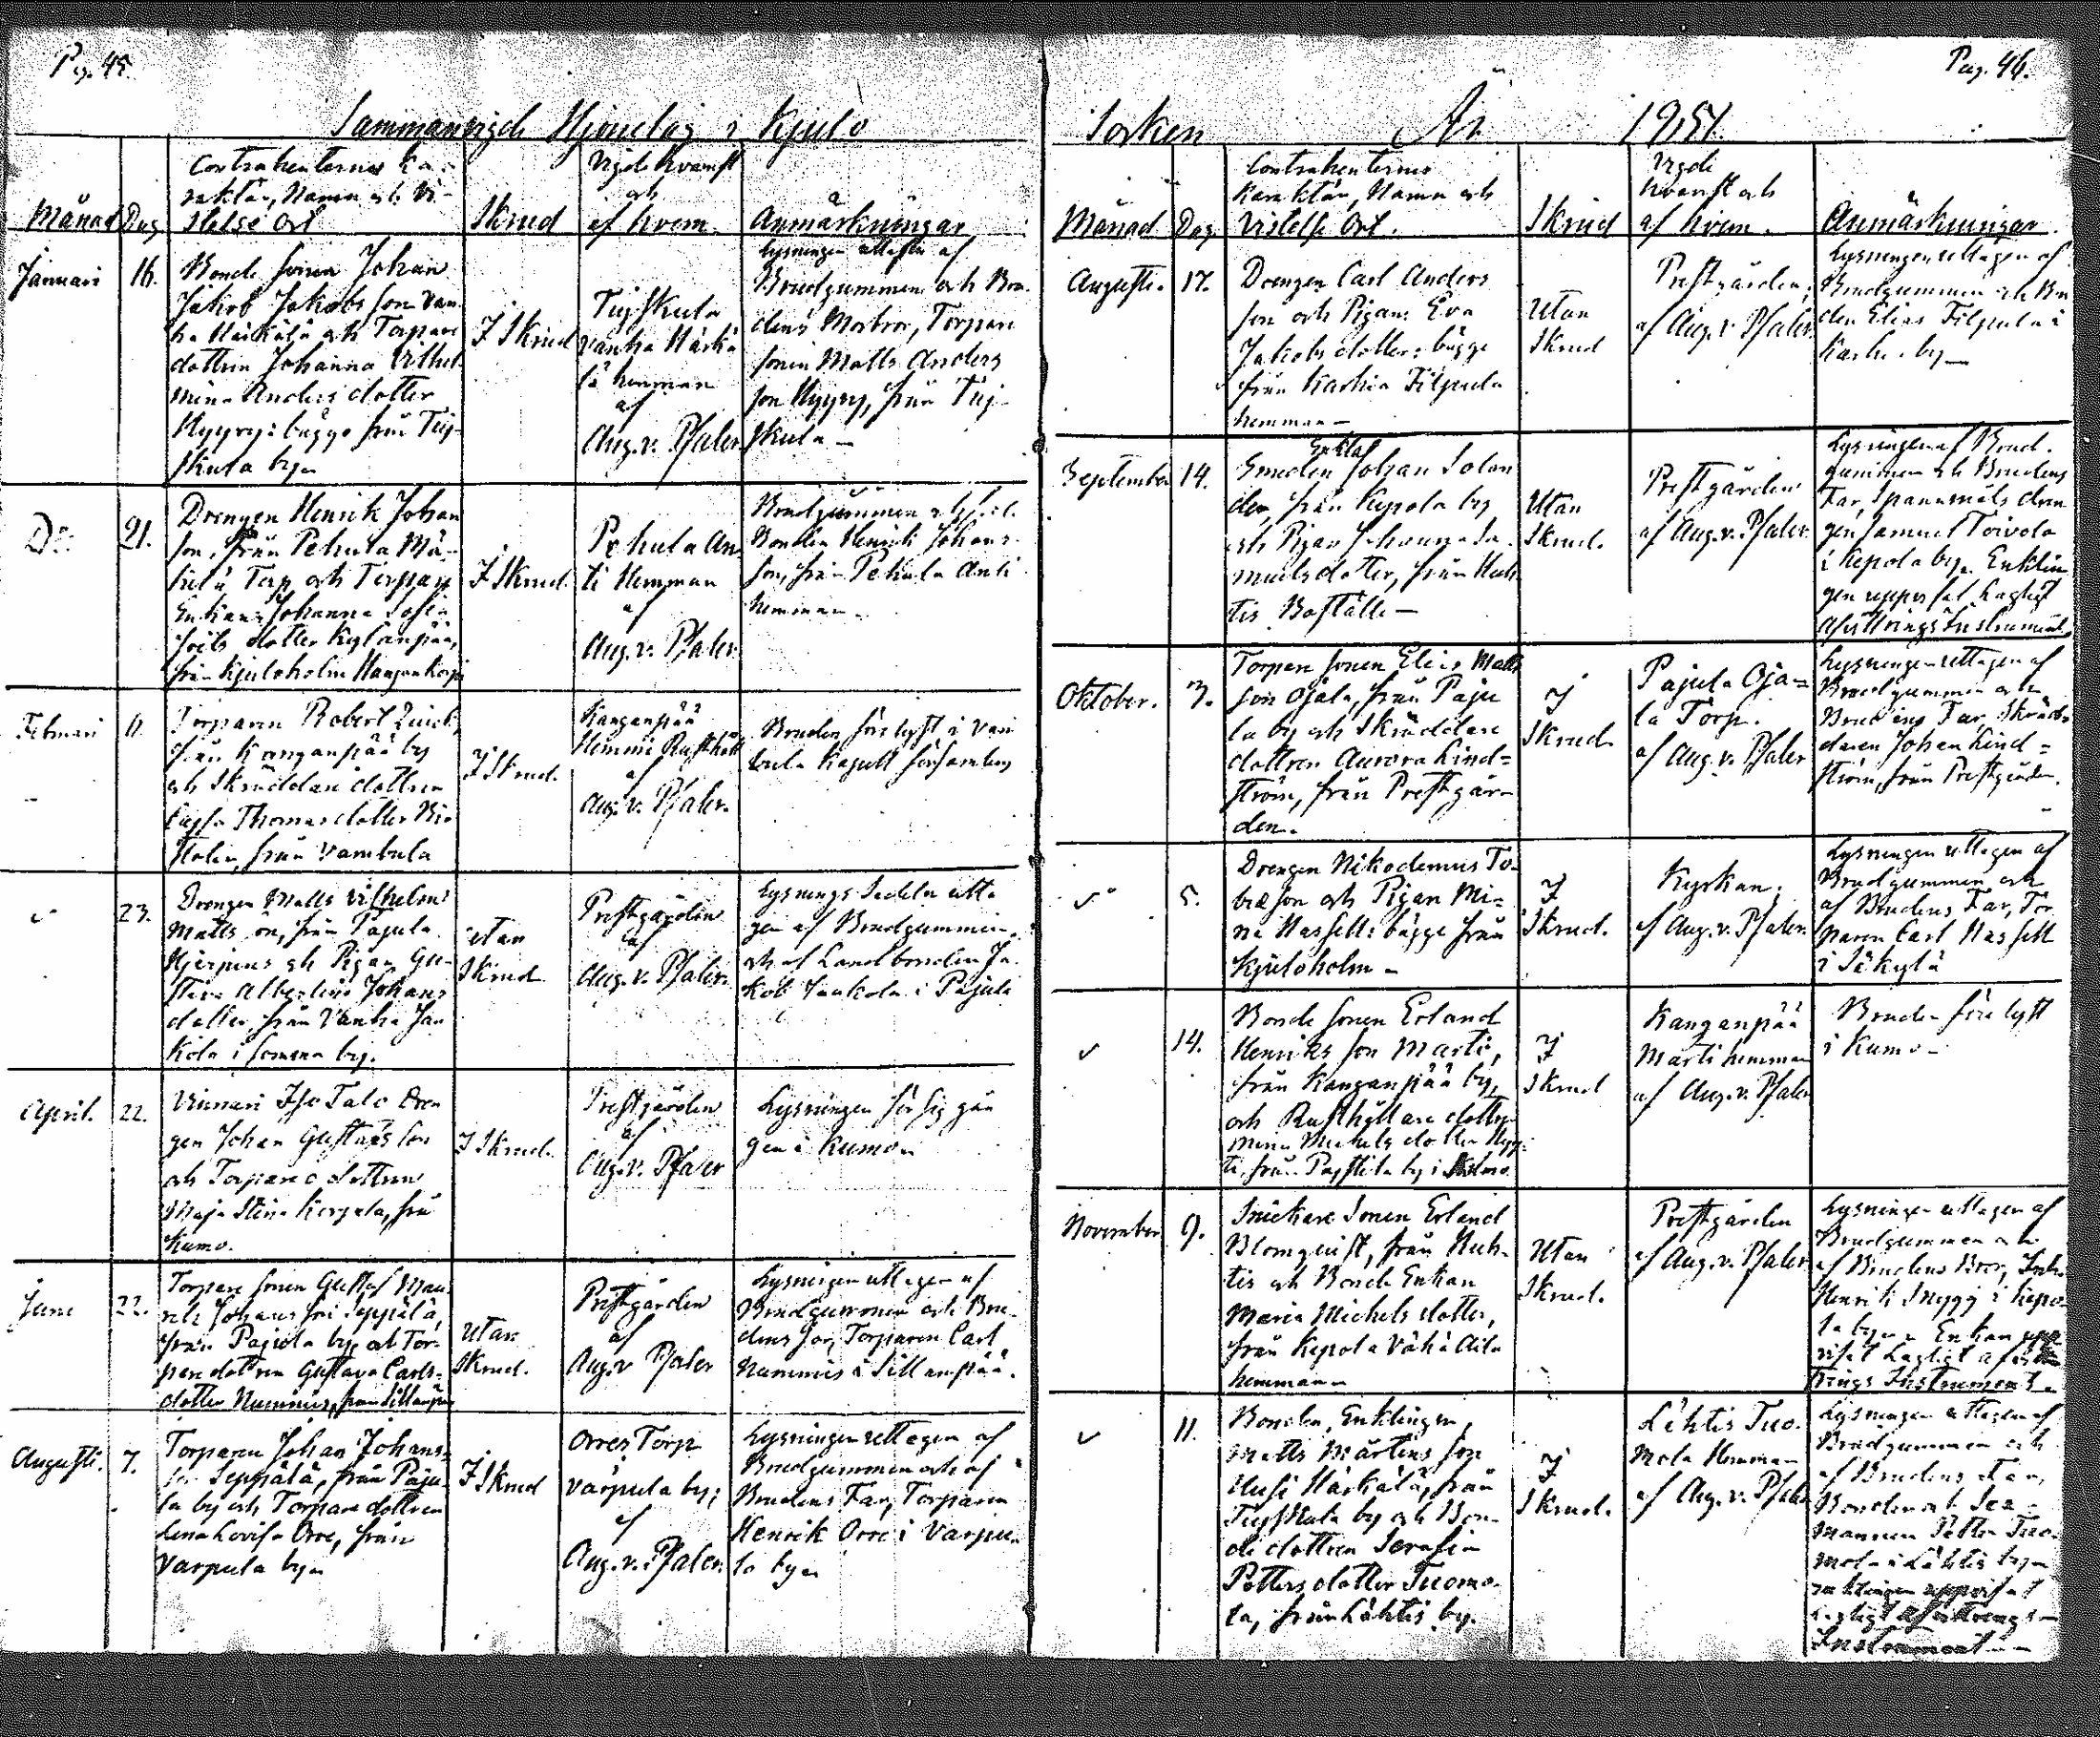 Pag. 45.
Sammanvigde Hjonelag i Kjulo
Månad Dag
Contrahenternes Ka-
raktär, Namn och Vi-
stelse Ort
Skrud
Vigde hvarest
och
af hvem.
Anmärkningar
Januari 16.
Bonde sonen Johan
Jakob Jakobs son Van
ha Härkälä och Torpare
dottren Johanna Vilhel
mina Anders dotter
Hyyry: bägge från Tuj-
skula by
I Skrud
Tujskula
vanha Härkä
lä hemman
af
Aug. v. Pfaler
Lysningen uttagen af
Brudgummen och Bru
dens Morbror, Torpare
sonen Matts Anders
son Hyyry, från Tuj-
skula —
Do. 21.
Drengen Henrik Johan
son, från Pehula Mä-
Torp och Torpare
Enkan Johanna Sofia
dotter Kylänpää,
från Kjuloholm Hangankorpi
I Skrud.
Pehula An
ti Hemman
af
Aug. v. Pfaler.
Brudgummen och
Bonden Henrik Johans
son, från Pehula Anti
hemman.
Februari 11.
Torparen Robert Quick,
från Kanganpää by
och Skräddare dottren
Cajsa Thomas dotter
från Vambula
I Skrud.
Kanganpää
Hemmi Rusthåll
af
Aug. v. Pfaler.
Bruden förlyst i Vam
bula Kapell församling
23.
Drengen Matts Vilhelm
Matts son, från Pajula
Hjerpens och Pigan Gu-
stava Albertina Johans
dotter, från Vanha Jaa
kola i by.
utan
Skrud
Prestgården
af
Aug. v. Pfaler.
Lysnings Sedeln utta
gen af Brudgummen,
och af Landbonden Ja
kob Jaakola i Pajula
April. 22.
Vinnari Iso Talo Dren
gen Johan Gustafs son
och Torpare dottren
Maja Stina Kerjala, frå
Kumo.
I Skrud.
Prestgården
af
Aug. v. Pfaler
Lysningen för sig gån
gen i Kumo
Juni 22.
Torpare sonen Gustaf Mau
ritz Johans son Seppälä,
från Pajula by, och Tor-
pare dottren Gustava Carls-
dotter Nummis, från Sillanpää
utan
Skrud.
Prestgården
af
Aug. v Pfaler
Lysningen uttagen af
Brudgummen och Bru
dens far, Torparen Carl
Nummis i Sillanpää.
Augusti. 7.
Torparen Johan Johans-
son Seppälä, från Paju
la by och Torpare dottren
Lena Lovisa Orre, från
Varpula by
I Skrud
Orres Torp
Varpula by;
af
Aug. v. Pfaler.
Lysningen uttagen af
Brudgummen och af
Brudens Far, Torparen
Henrik Orre i Varpu-
la by
Pag. 46.
Socken År 1851
Månad Dag
Contrahenternes
Karaktär, Namn och
Vistelse Ort.
Skrud
Vigde
hvarest och
af hvem.
Anmärkningar.
Augusti. 17.
Drengen Carl Anders
son och Pigan Eva
Jakobs dotter: bägge
från Karhia Filpula
hemman —
Utan
Skrud
Prestgården;
af Aug. v. Pfaler.
Lysningen uttagen af
Brudgummen och Bru
den Elias Filpula i
Karhia by —
September 14.
Enkl.
Smeden Johan Solan
der, från Kepola by
och Pigan Johanna Sa-
muels dotter, från Huh
tis Boställe —
Utan
Skrud.
Prestgården
af Aug. v. Pfaler.
Lysningen af Brud-
gummen och Brudens
Far, Spannmåls dren
gen Samuel Toivola
i Kepola by. Enklin
gen uppvisat Lagligt
Afvittrings Instrument.
Oktober. 3.
Torpare sonen Elias Matts
son Ojala, från Paju
la by och Skräddare
dottren Aurora Lind=
ström, från Prestgår-
den.
I
Skrud.
Pajula Oja=
la Torp.
af Aug. v. Pfaler
Lysningen uttagen af
Brudgummen och
Brudens Far, Skräd-
daren Johan Lind=
ström, från Prestgården.
5.
Drengen Nikodemus To-
bia son och Pigan Mi=
na Hassell: bägge från
Kjuloholm —
I
Skrud.
Kyrkan;
af Aug. v. Pfaler.
Lysningen uttagen af
Brudgummen och
af Brudens Far, Tor
paren Carl Hassell
i Säkylä
14.
Bonde sonen Erland
Henriks son Marti,
från Kanganpää by,
och Rusthållare dottren
Mina Michels dotter
från by i Kumo
I
Skrud
Kanganpää
Marti hemman
af Aug. v. Pfaler
Bruden förelyst
i Kumo —
November 9.
Snickare Sonen Erland
Blomqvist, från Huh-
tis och Bonde Enkan
Maria Michels dotter,
från Kepola Vähä Äila
hemman
Utan
Skrud.
Prestgården
af Aug. v. Pfaler
Lysningen uttagen af
Brudgummen och
af Brudens Bror,
Henrik Snygg i Kepo-
la by. Enkan upp
visat Lagligt afvitt
rings Instrument.
11.
Bonden, Enklingen,
Matts Mårtens son
Uusi Härkälä, från
Tujskula by och Bon-
de dottren Serafia
Petters dotter Tuomo-
la, från Lähtis by.
I
Skrud.
Lähtis Tuo-
mola Hemman
af Aug. v. Pfaler
Lysningen uttagen af
Brudgummen och
af Brudens Far,
Bonden och Sex-
mannen Petter Tuo-
mola i Lähtis by
enklingen uppvisat
lagligt Afvittrings-
Instrument —